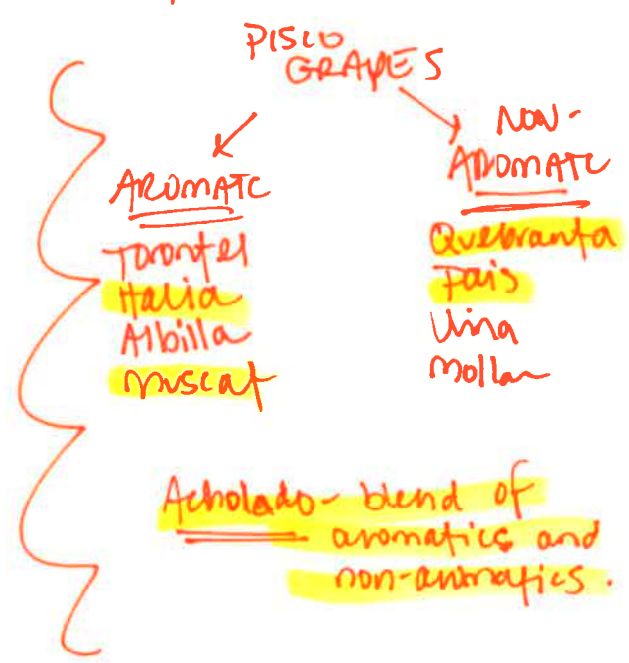 PISCO
GRAPES
AROMATC
Torontel
Italia
Albilla
Muscat
NON-
AROMATC
Quebranta
Pais
Uina
Mollar
Acholado - blend of
aromatics and
non-aromatics.